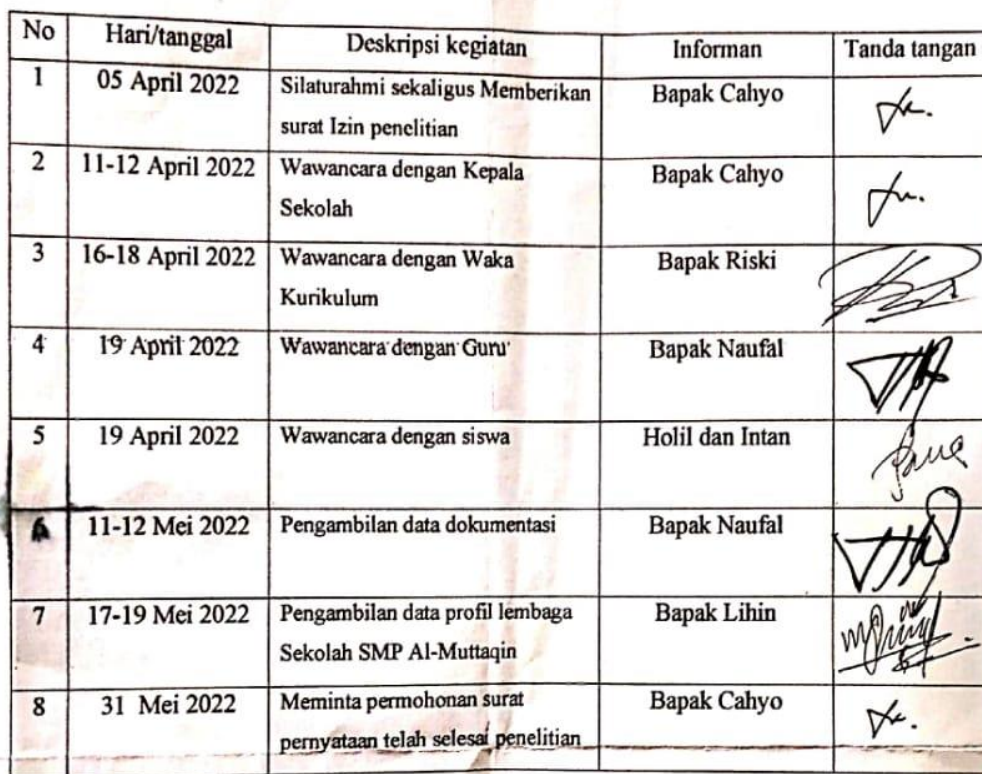 No Hari/tanggal Deskripsi kegiatan Informan Tanda tangan
1 05 April 2022 Silaturahmi sekaligus Memberikan Bapak Cahyo
surat Izin penelitian
2 11-12 April 2022 Wawancara dengan Kepala Bapak Cahyo
Sekolah
3 16-18 April 2022 Wawancara dengan Waka Bapak Riski
Kurikulum
4 19 April 2022 Wawancara dengan Guru Bapak Naufal
5 19 April 2022 Wawancara dengan siswa Holil dan Intan
6 11-12 Mei 2022 Pengambilan data dokumentasi Bapak Naufal
7 17-19 Mei 2022 Pengambilan data profil lembaga Bapak Lihin
Sekolah SMP Al-Muttaqin
8 31 Mei 2022 Meminta permohonan surat Bapak Cahyo
pernyataan telah selesai penelitian